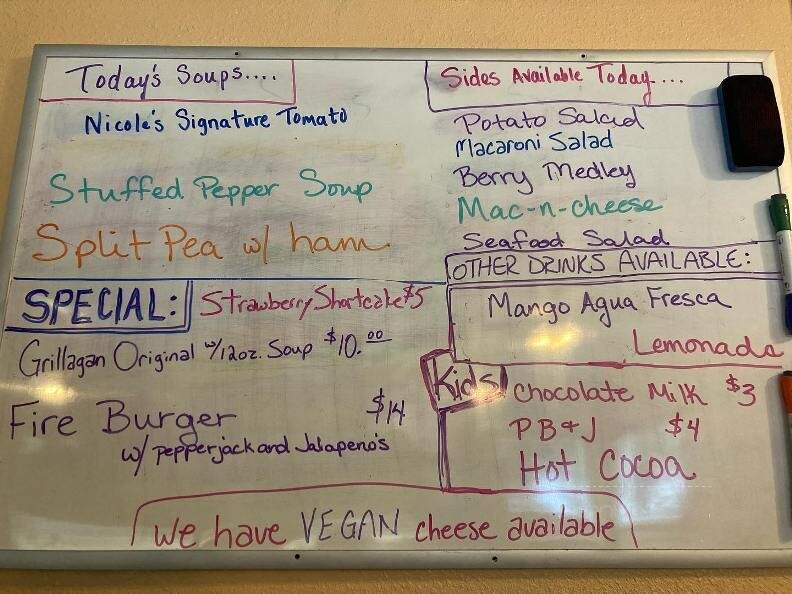 Today's Soups....
Nicole's Signature Tomato
Stuffed Pepper Soup
Split Pea w/ ham
SPECIAL: Strawberry Shortcake $5
Grillagan Original w/12oz. Soup $10.00
Fire Burger $14
w/ pepperjack and Jalapeno's
Sides Available Today....
Potato Salad
Macaroni Salad
Berry Medley
Mac-n-cheese
Seafood Salad
OTHER DRINKS AVAILABLE:
Mango Agua Fresca
Lemonada
Kids
Chocolate Milk $3
PB&J $4
Hot Cocoa
We have VEGAN cheese available